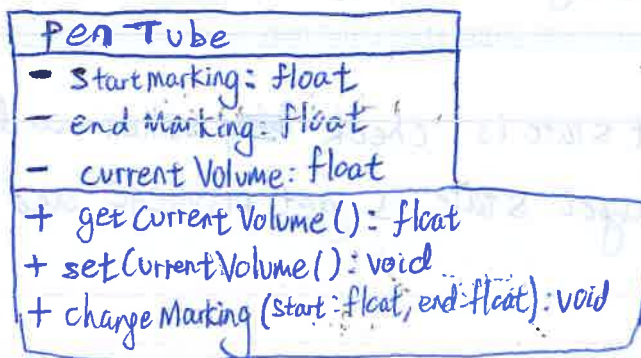 Pen Tube
- Startmarking: float
- end Marking: float
- current Volume: float
+ get Current Volume(): float
+ setCurrentVolume(): void
+ change Marking (start: float, end: float): void